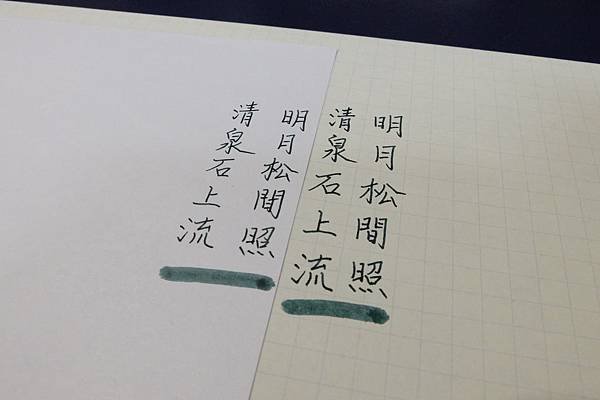 明月松間照
清泉石上流
明月松間照
清泉石上流